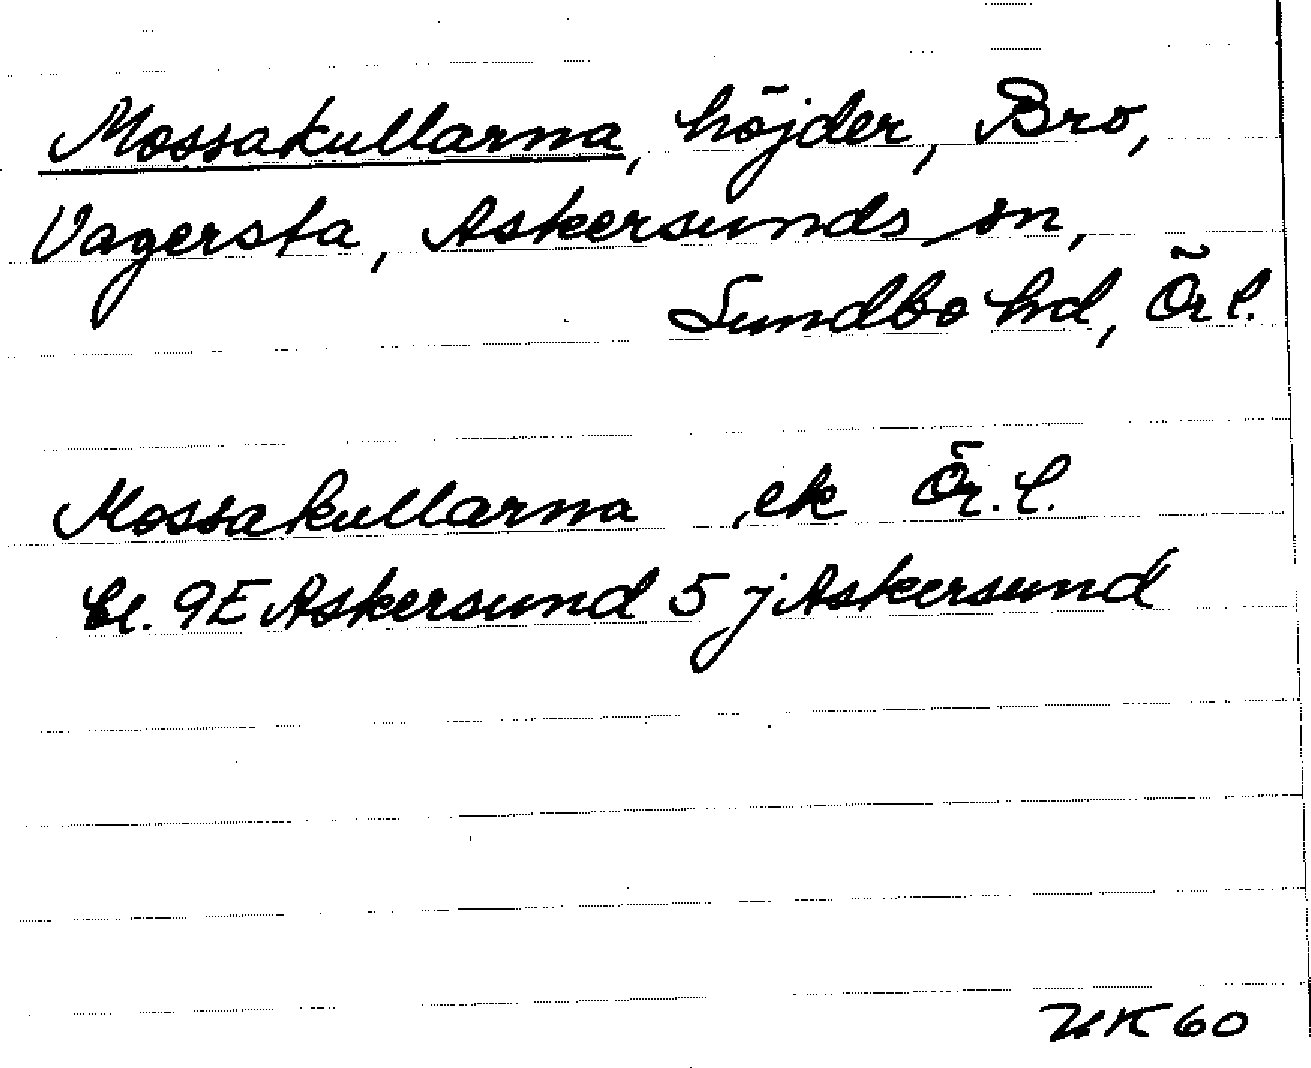 Mossakullarna, höjder, Bro,
Vagersta, Askersunds sn,
Sundbo hd, Ör l.
Mossakullarna, ek Ör. l.
bl. 9E Askersund 5 j Askersund
UK 60